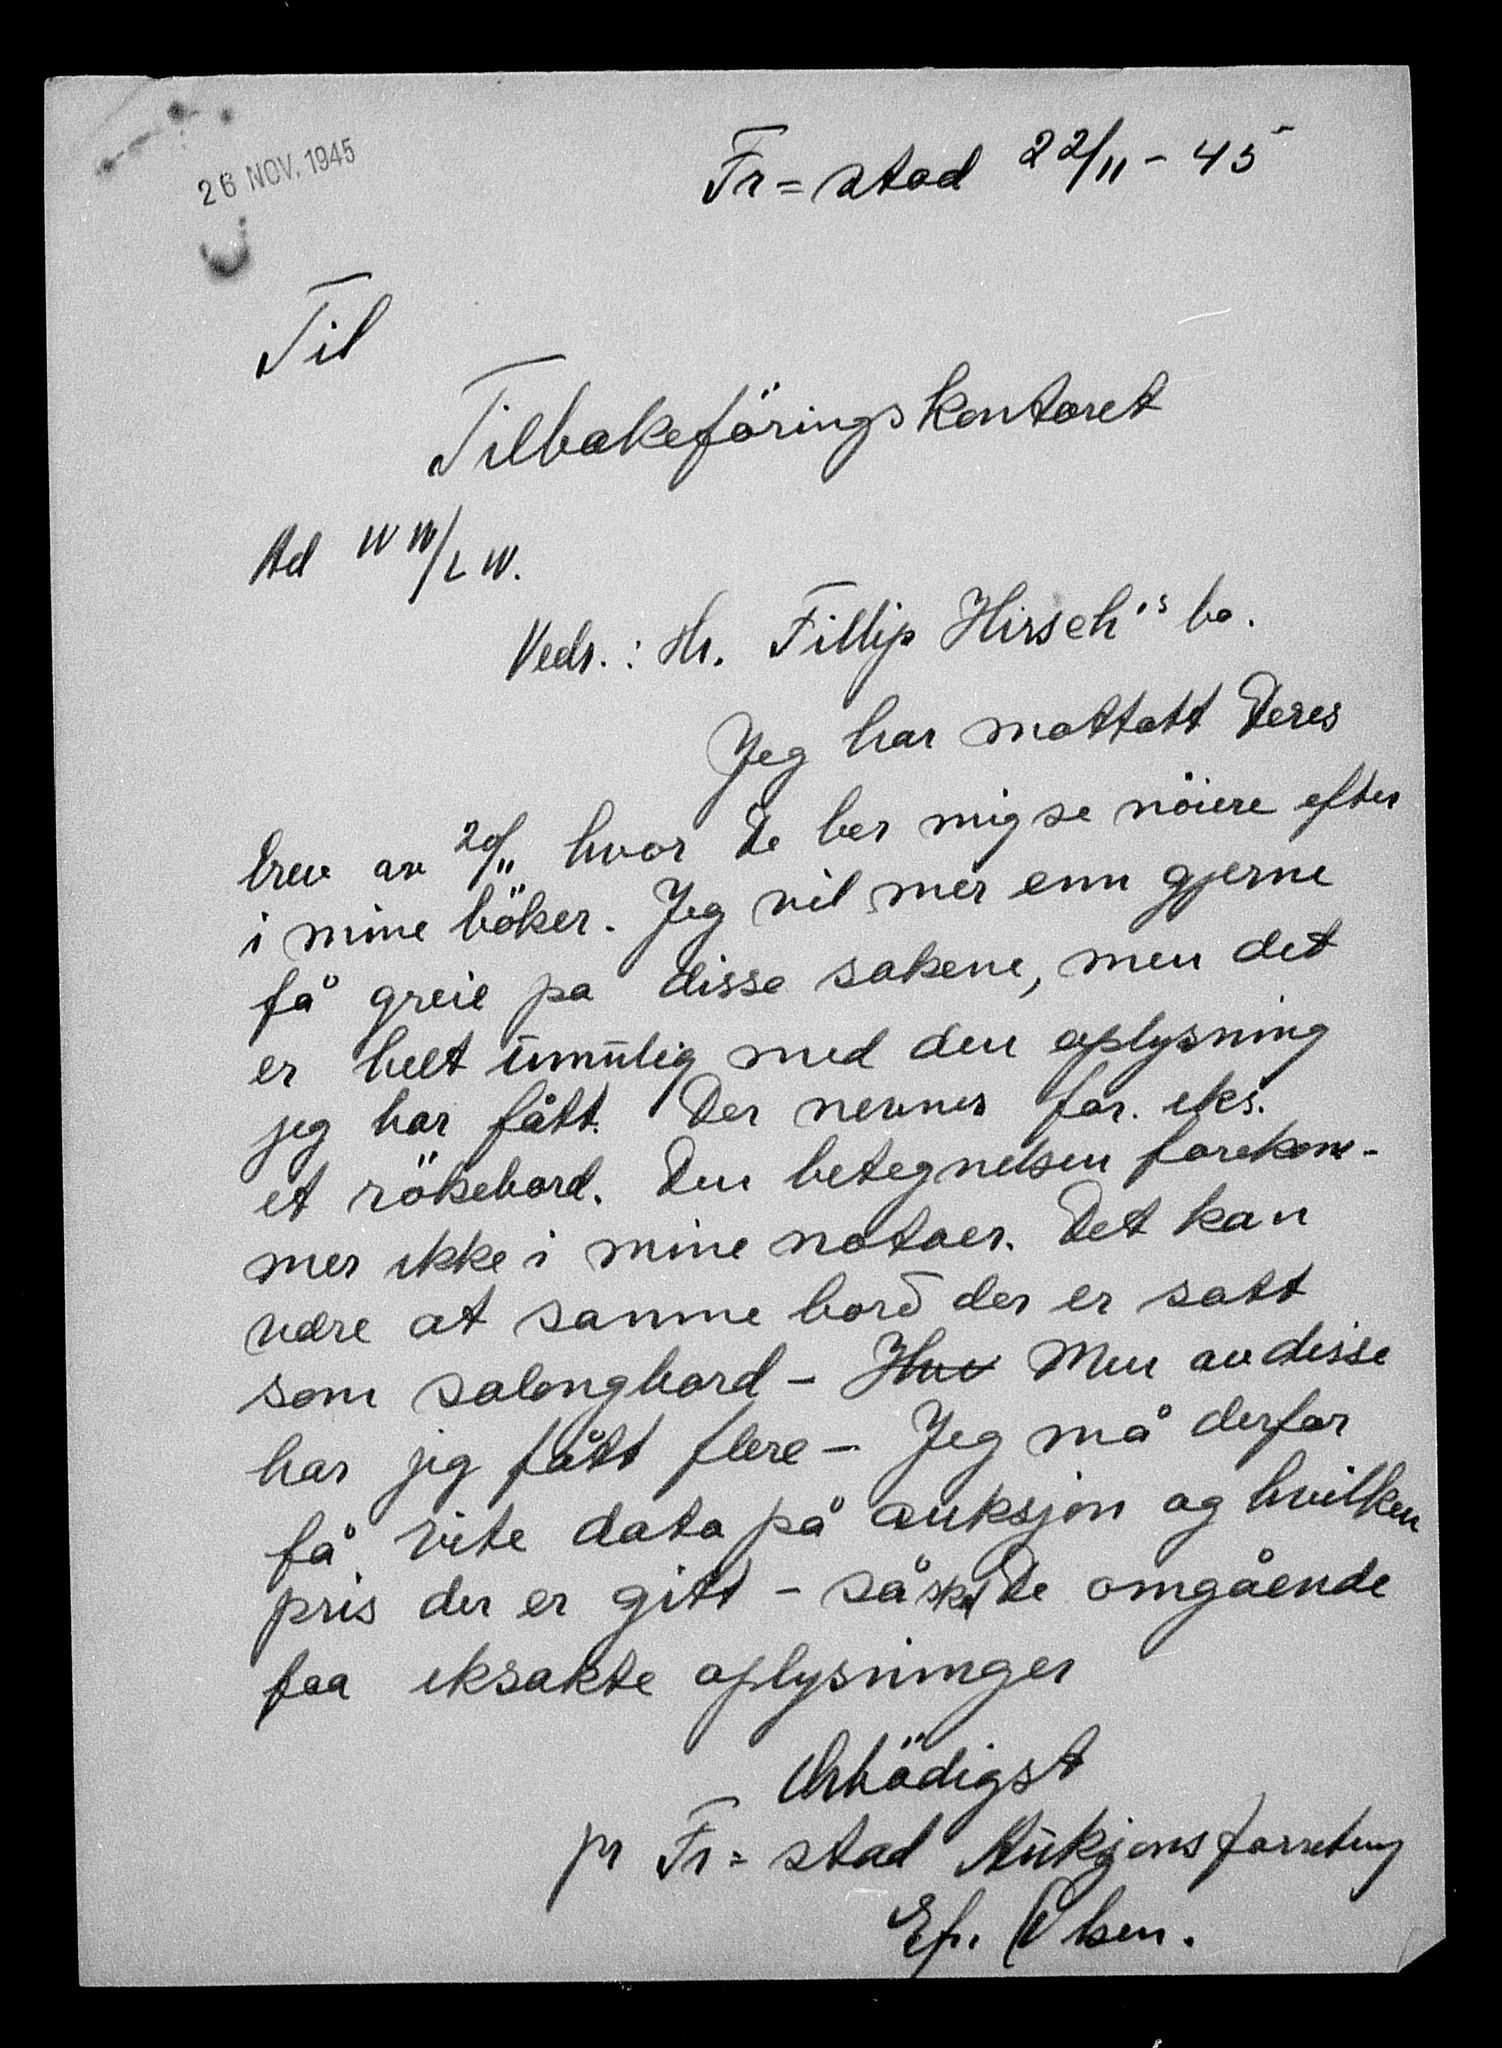 26 NOV. 1945
Fr=stad 22/11 - 45
Til
Tilbakeföringskontoret
Ad WW/LW.
Vedr.: Hr. Fillip Hirsch's bo.
Jeg har mottatt Deres
brev av 20/11 hvor De ber mig se nöiere efter
i mine böker. Jeg vil mer enn gjerne
få greie pa disse sakene, men det
er helt umulig med den oplysning
jeg har fått. Der nevnes for. eks.
et rökebord. Den betegnelsen forekom-
mer ikke i mine notaer. Det kan
være at samme bord der er satt
som salongbord - Hvo Men av disse
har jeg fått flere - Jeg må derfor
få vite data på auksjon og hvilken
pris der er gitt - så skal De omgående
faa eksakte oplysninger
Ærbödigst
pr Fr=stad Auksjonsforretning
Ef. Olsen.